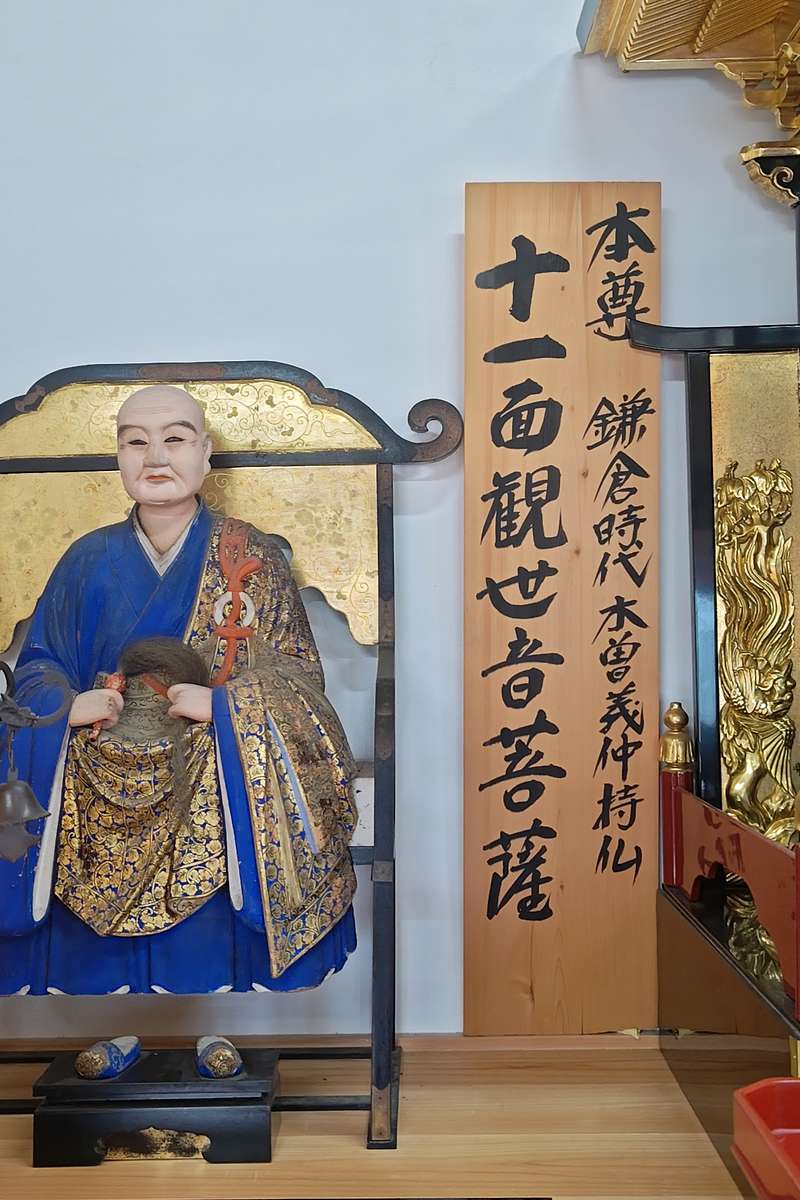 本尊 鎌倉時代木曽義仲持仏
十一面観世音菩薩